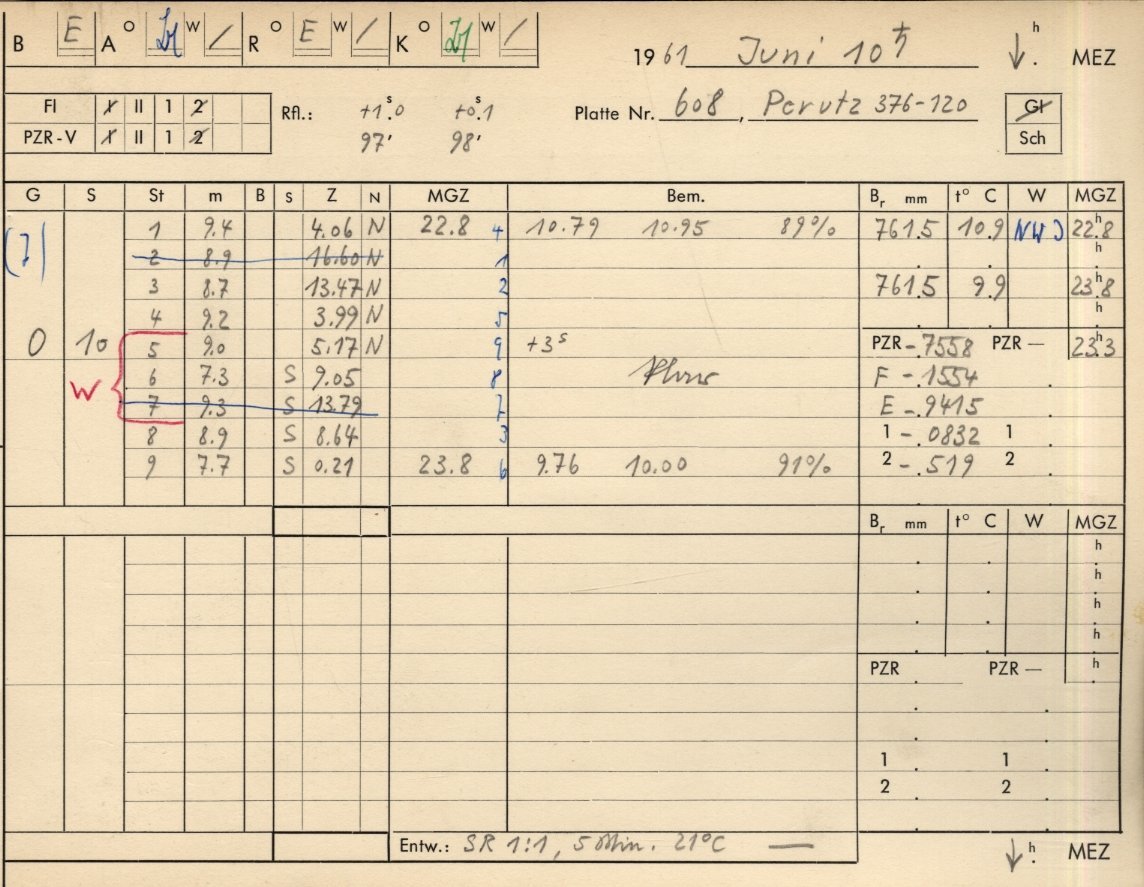 B E A O W / R O E W / K O W /
1961 Juni 10 ♄ h MEZ
FI I II 1 2 Rfl.: +1ˢ.0 +0ˢ.1 Platte Nr. 608, Perutz 376-120 Gl
PZR-V I II 1 2 97' 98' Sch
G S St m B S Z N MGZ Bem. Bᵣ mm t° C W MGZ
1 9.4 4.06 N 22.8 4 10.79 10.95 89% 761.5 10.9 NW 22.8 h
2 8.9 16.60 N 1 h
3 8.7 13.47 N 2 761.5 9.9 23.8 h
4 9.2 3.99 N 5 h
0 10 5 9.0 5.17 N 9 +3ˢ PZR-.7558 PZR — 23.3 h
W 6 7.3 S 9.05 8 F -.1554
7 9.3 S 13.79 7 E -.9415
8 8.9 S 8.64 3 1 -.0832 1
9 7.7 S 0.21 23.8 6 9.76 10.00 91% 2 -.519 2
Bᵣ mm t° C W MGZ
h
h
h
h
PZR PZR — h
1 1
2 2
Entw.: SR 1:1, 5 Min. 21°C —
h MEZ